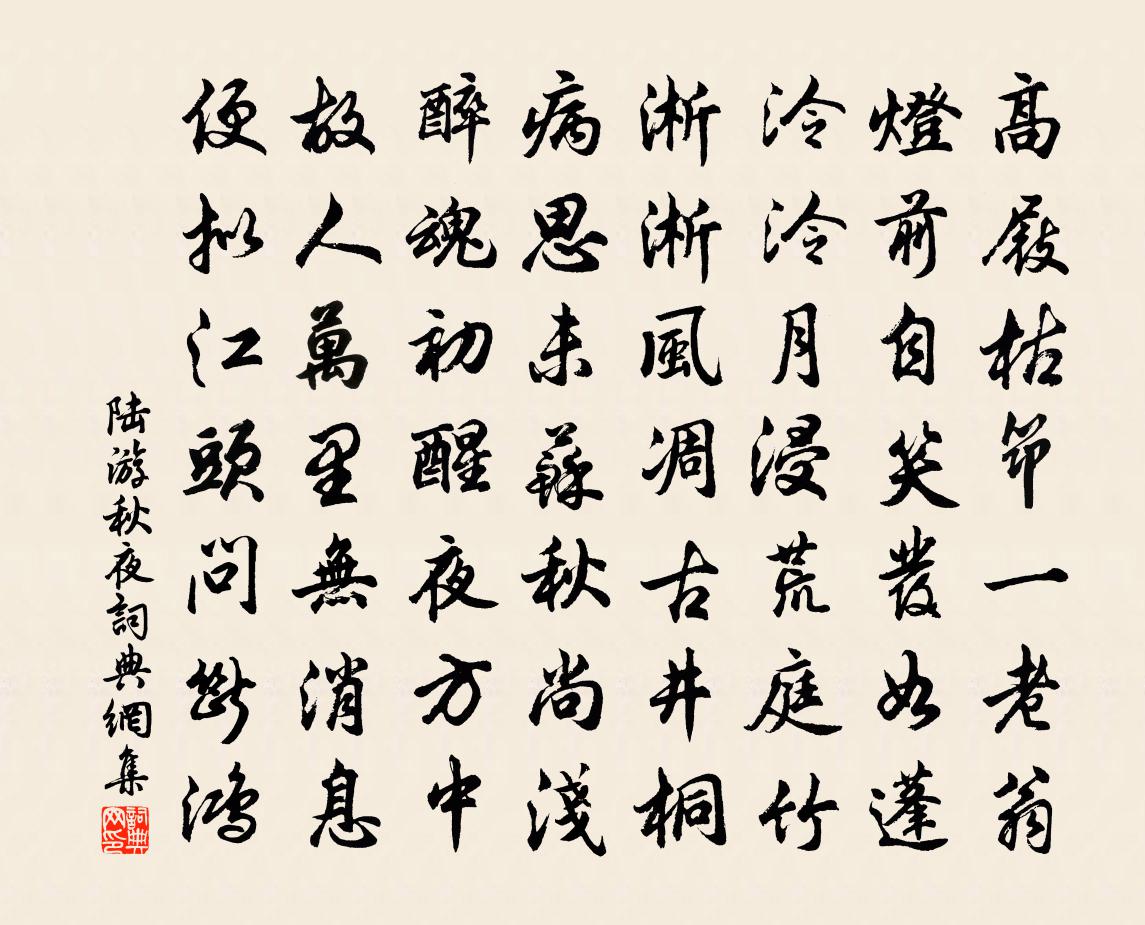 高屐枯筇一老翁
燈前自笑髮如蓬
泠泠月浸荒庭竹
淅淅風凋古井桐
病思未蘇秋尚淺
醉魂初醒夜方中
故人萬里無消息
便拟江頭問斷鴻
陆游秋夜詞典網集
詞典
网印